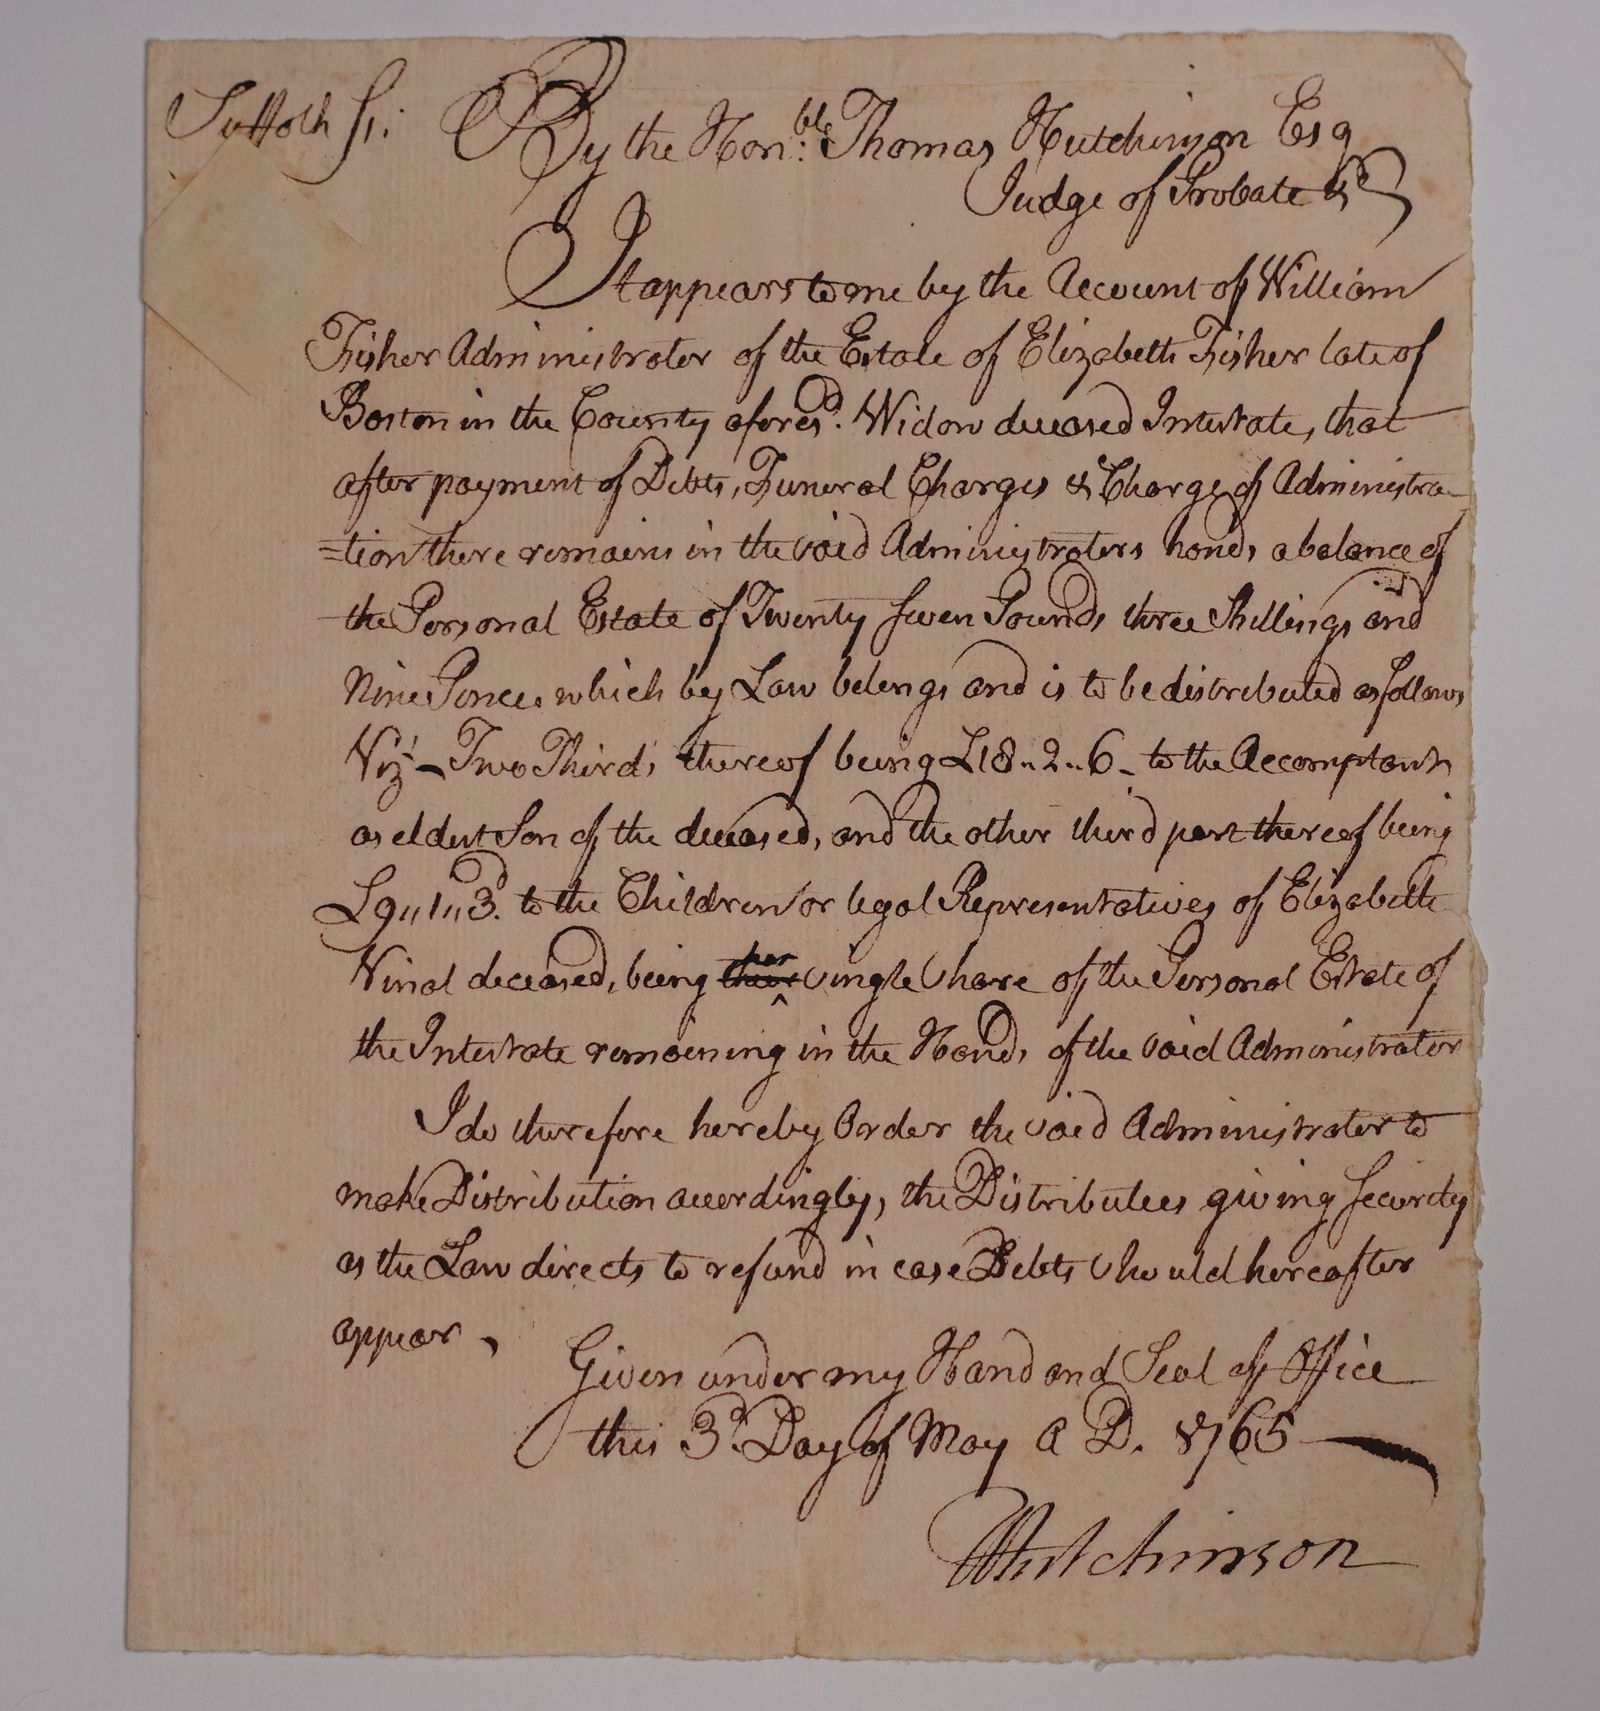 Suffolk ss: By the Hon:ble Thomas Hutchinson Esq
Judge of Probate &c
It appears to me by the Account of William
Fisher Administrator of the Estate of Elizabeth Fisher late of
Boston in the County afores:d Widow deceased Intestate, that
after payment of Debts, Funeral Charges & Charge of Administra-
=tion there remains in the said Administrators hands a balance of
the Personal Estate of Twenty Seven Pounds three Shillings and
Nine Pence, which by Law belongs and is to be distributed as follows
Viz:t Two Thirds thereof being £18..2..6- to the Accomptant
as eldest Son of the deceased, and the other third part thereof being
£9,,1,,3.d to the Children or legal Representatives of Elizabeth
Vinal deceased, being their her single Share of the Personal Estate of
the Intestate remaining in the Hands of the said Administrator
I do therefore hereby Order the said Administrator to
make Distribution accordingly, the Distributees giving Security
as the Law directs to refund in case Debts should hereafter
appear.
Given under my Hand and Seal of Office
this 3.d Day of May A D. 1765
T Hutchinson